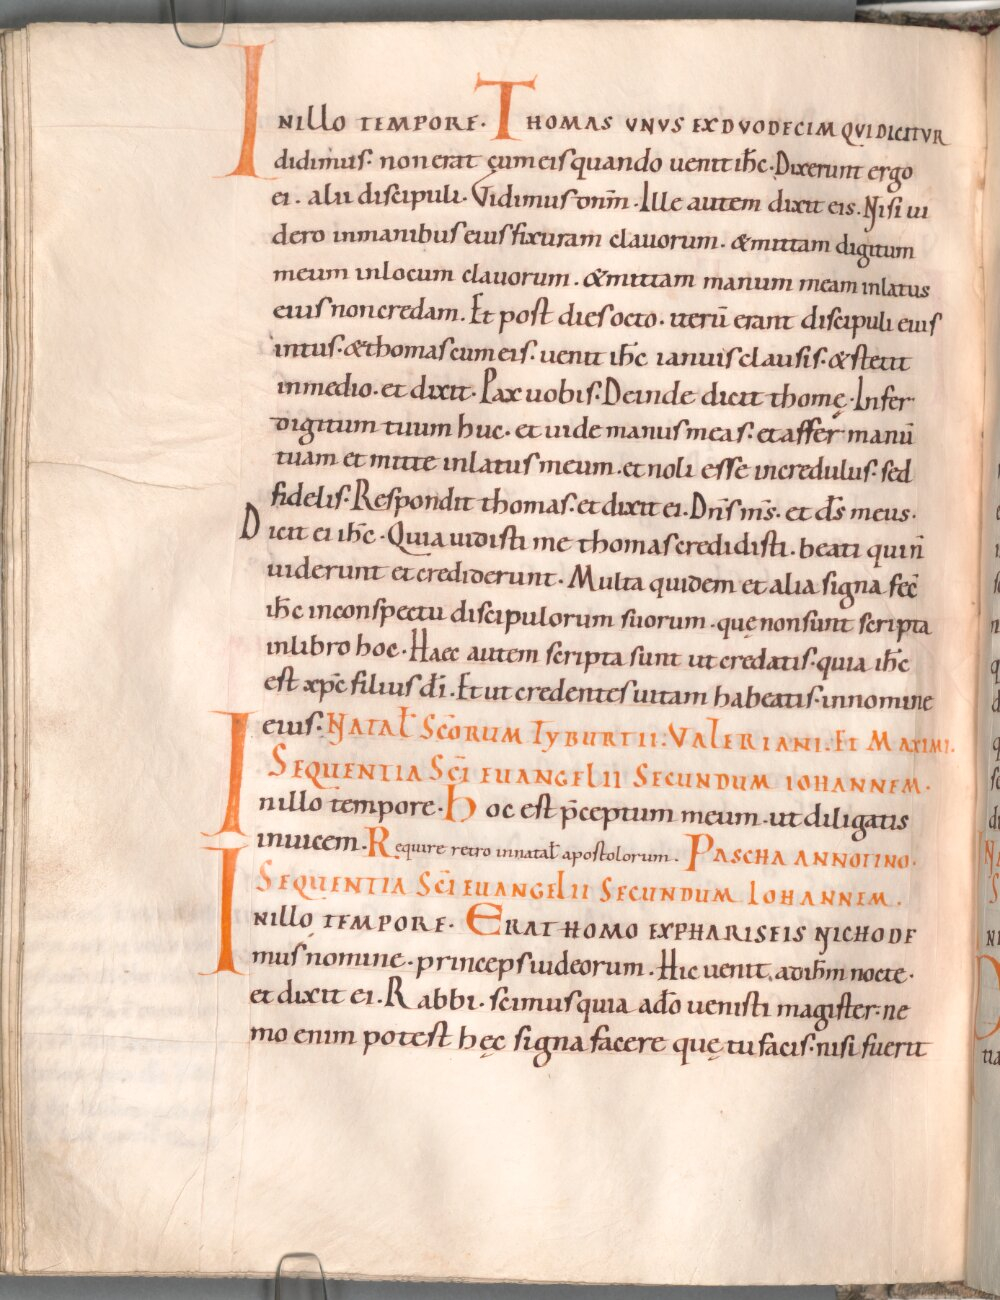 IN ILLO TEMPORE. THOMAS VNVS EX DVODECIM QVI DICITVR
didimus. non erat cum eis quando uenit ihc. Dixerunt ergo
ei. alii discipuli. Vidimus dnm. Ille autem dixit eis. Nisi ui
dero in manibus eius fixuram clauorum. & mittam digitum
meum in locum clauorum. & mittam manum meam in latus
eius non credam. Et post dies octo. iterū erant discipuli eius
intus. & thomas cum eis. uenit ihc ianuis clausis. & stetit
in medio. et dixit. Pax uobis. Deinde dicit thomę. Infer
digitum tuum huc. et uide manus meas. et affer manū
tuam et mitte in latus meum. et noli esse incredulus. sed
fidelis. Respondit thomas. et dixit ei. Dn̄s m̄s. et d̄s meus.
Dicit ei ihc. Quia uidisti me thomas credidisti. beati qui n̄
uiderunt et crediderunt. Multa quidem et alia signa fec̄
ihc in conspectu discipulorum suorum. quę non sunt scripta
in libro hoc. Haec autem scripta sunt ut credatis. quia ihc
est xpc filius dī. Et ut credentes uitam habeatis. in nomine
eius. NATAŁ SC̄ORUM TYBURTII. VALERIANI. ET MAXIMI.
SEQUENTIA SC̄I EUANGELII SECUNDUM IOHANNEM.
In illo tempore. Hoc est p̄ceptum meum. ut diligatis
inuicem. Require retro in natał apostolorum. PASCHA ANNOTINO.
SEQUENTIA SC̄I EUANGELII SECUNDUM IOHANNEM.
IN ILLO TEMPORE. ERAT HOMO EX PHARISEIS NICHODE
mus nomine. princeps iudeorum. Hic uenit ad ihm nocte.
et dixit ei. Rabbi. scimus quia a dō uenisti magister. ne
mo enim potest hęc signa facere quę tu facis. nisi fuerit